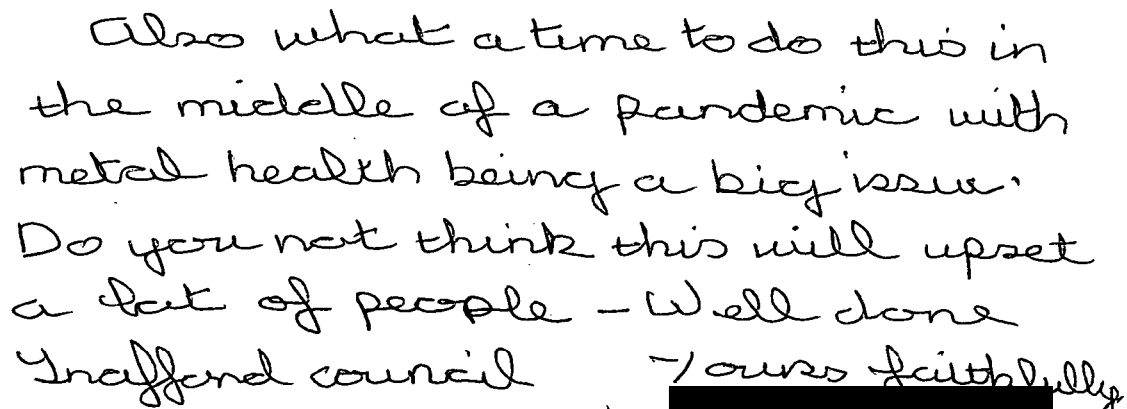 Also what a time to do this in
the middle of a pandemic with
metal health being a big issue.
Do you not think this will upset
a lot of people - Well done
Trafford council Yours faithfully